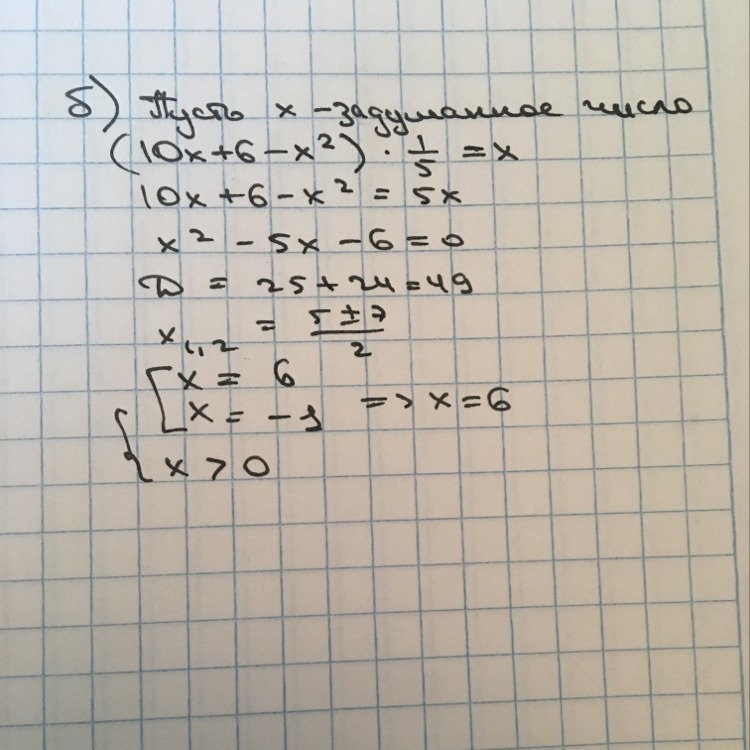 б) Пусть x - задуманное число
(10x + 6 - x²) · 1/5 = x
10x + 6 - x² = 5x
x² - 5x - 6 = 0
D = 25 + 24 = 49
x₁,₂ = (5 ± 7)/2
{ [ x = 6
x = -1 => x = 6
x > 0